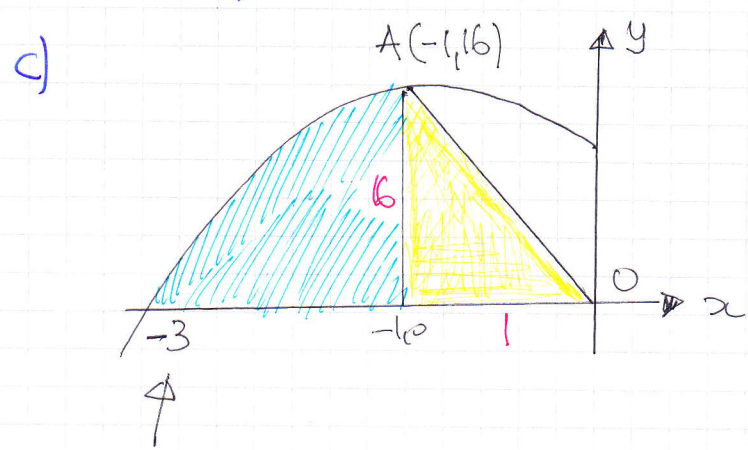 c)
A(-1,16)
y
16
0
x
-3
-1,0
1